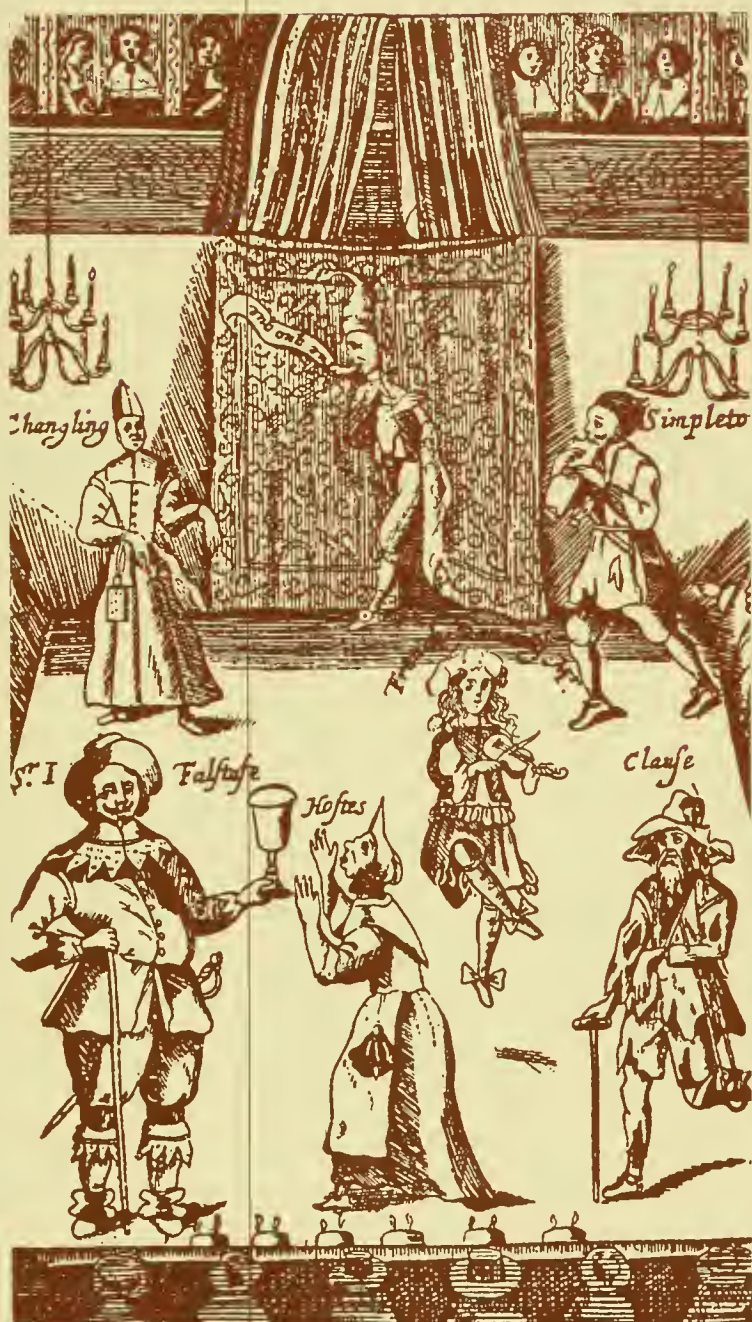 Changling
Simpleto
Sʳ. I Falſtafe
Hoſtes
Clauſe